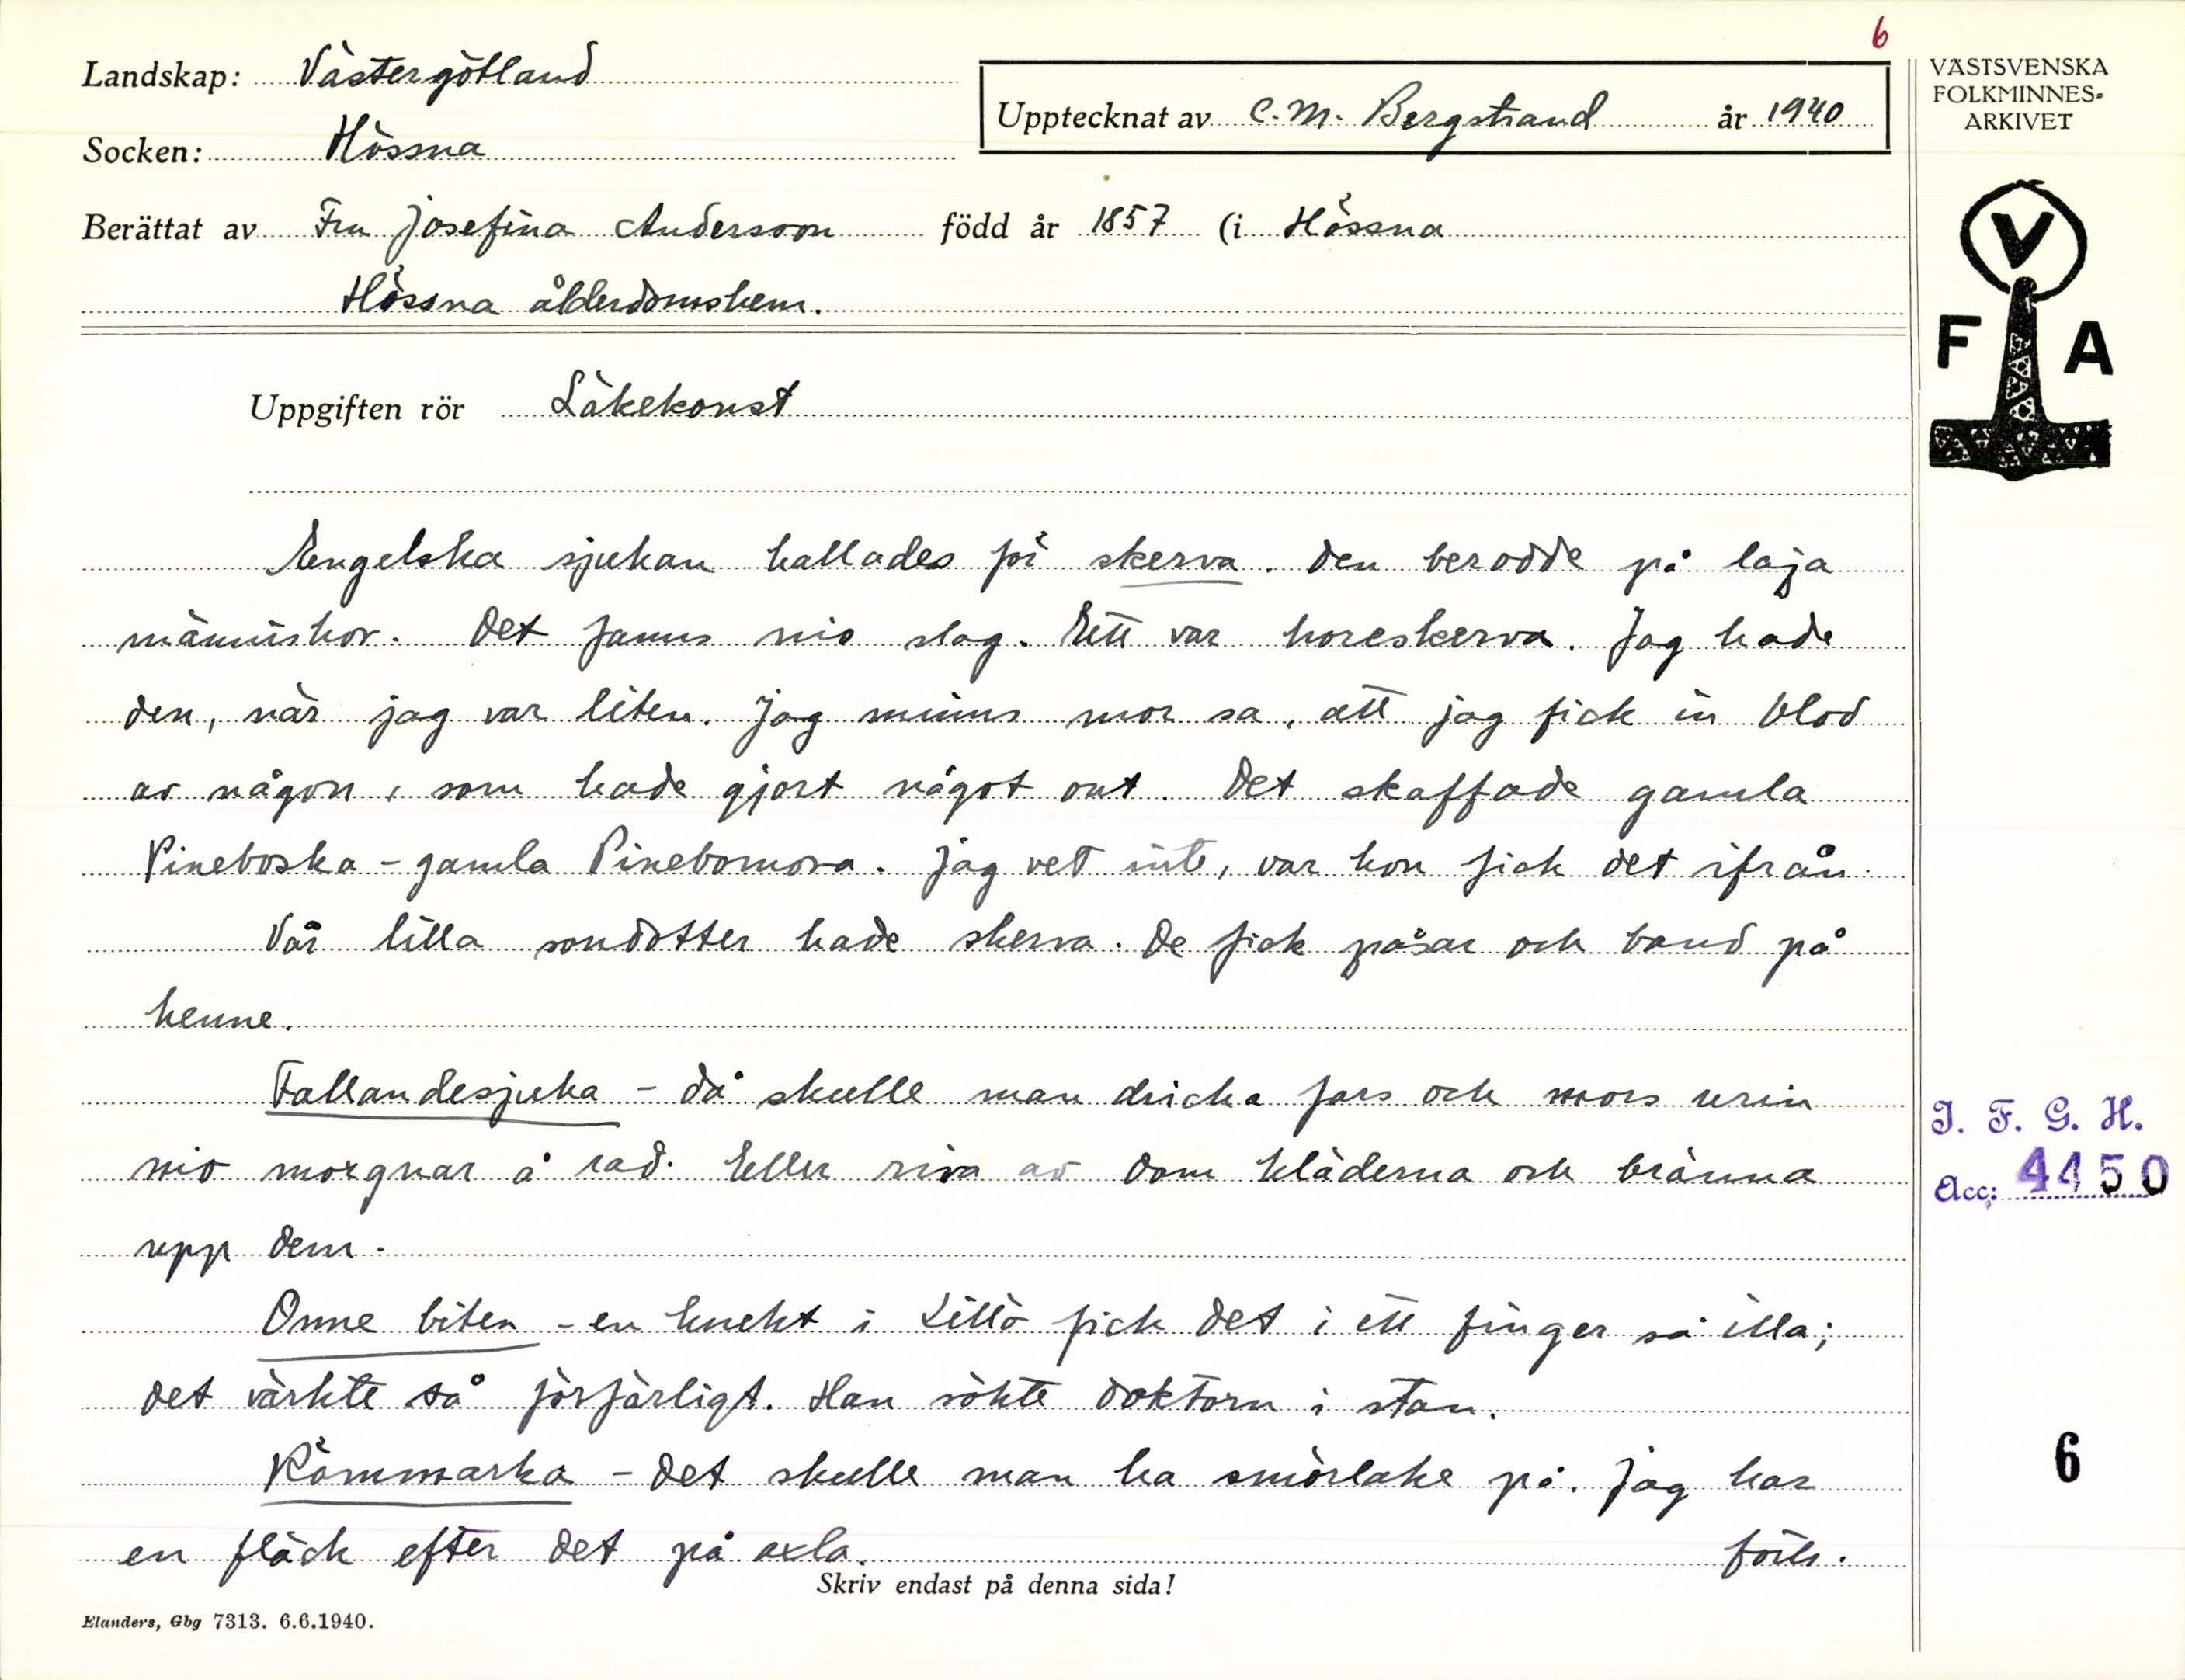 6
Landskap: Västergötland
Upptecknat av C.M. Bergstrand år 1940
Socken: Hössna
Berättat av Fru Josefina Andersson född år 1857 (i Hössna
Hössna ålderdomshem.
VÄSTSVENSKA
FOLKMINNES-
ARKIVET
V
F A
Uppgiften rör Läkekonst
Engelska sjukan kallades för skerva. Den berodde på laja
människor. Det fanns nio slag. Ett var horeskerva. Jag hade
den, när jag var liten. Jag minns mor sa, att jag fick in blod
av någon, som hade gjort något ont. Det skaffade gamla
Pineboska - gamla Pinebomora. Jag vet inte, var hon fick det ifrån.
Vår lilla sondotter hade skerva. De fick påsar och band på
henne.
Fallandesjuka - då skulle man dricka fars och mors urin
nio morgnar å rad. Eller riva av dom kläderna och bränna
upp dem.
Onne biten - en knekt i Lillö fick det i ett finger så illa;
det värkte så förfärligt. Han sökte doktorn i stan.
Römmarka - det skulle man ha smörlake på. Jag har
en fläck efter det på axla. forts.
Skriv endast på denna sida!
Elanders, Gbg 7313. 6.6.1940.
I. F. G. H.
Acc: 4450
6